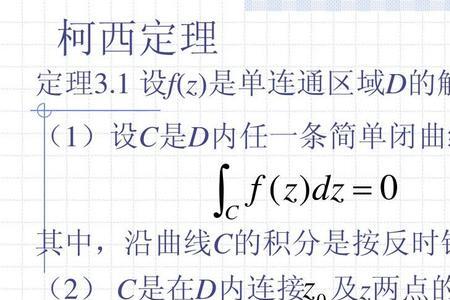 柯西定理
定理3.1 设f(z)是单连通区域D的解
（1）设C是D内任一条简单闭曲线
∫_C f(z)dz = 0
其中，沿曲线C的积分是按反时针
（2） C是在D内连接z₀及z两点的